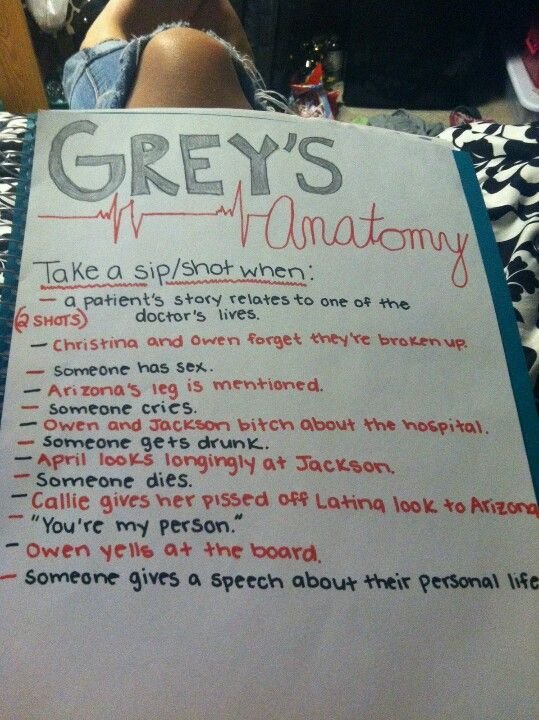 GREY'S
Anatomy
Take a sip/shot when:
– a patient's story relates to one of the
doctor's lives.
(2 SHOTS)
– Christina and Owen forget they're broken up.
– Someone has sex.
– Arizona's leg is mentioned.
– Someone cries.
– Owen and Jackson bitch about the hospital.
– Someone gets drunk.
– April looks longingly at Jackson.
– Someone dies.
– Callie gives her pissed off Latina look to Arizona
– "You're my person."
– Owen yells at the board.
– Someone gives a speech about their personal life